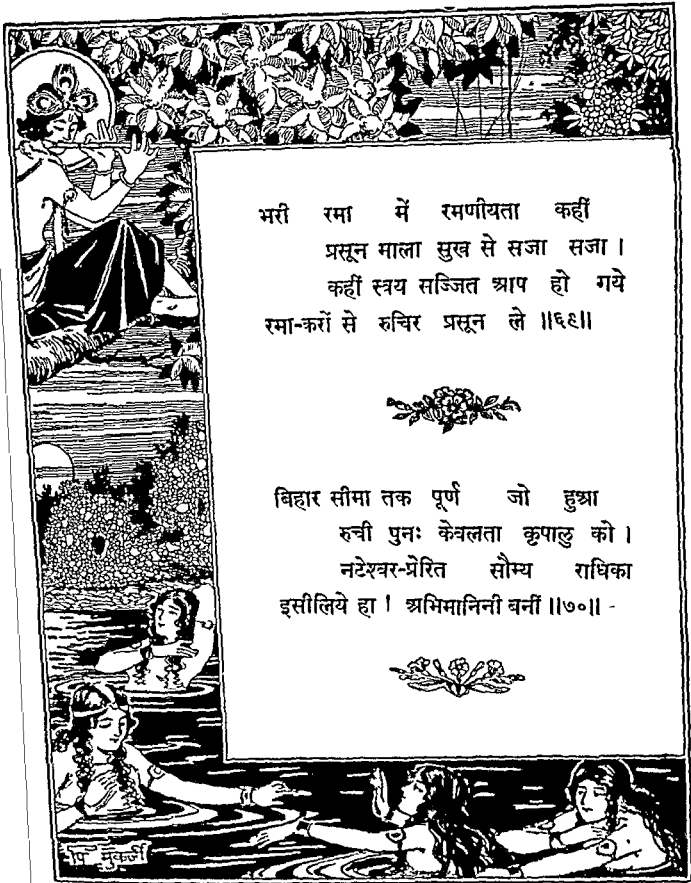 भरी रमा में रमणीयता कहीं
प्रसून माला सुख से सजा सजा ।
कहीं स्त्रय सज्जित आप हो गये
रमा-करों से रुचिर प्रसून ले ॥६९॥
बिहार सीमा तक पूर्ण जो हुआ
रुची पुनः केवलता कृपालु को ।
नटेश्वर-प्रेरित सौम्य राधिका
इसीलिये हा ! अभिमानिनी बनीं ॥७०॥
पि मुकर्जी